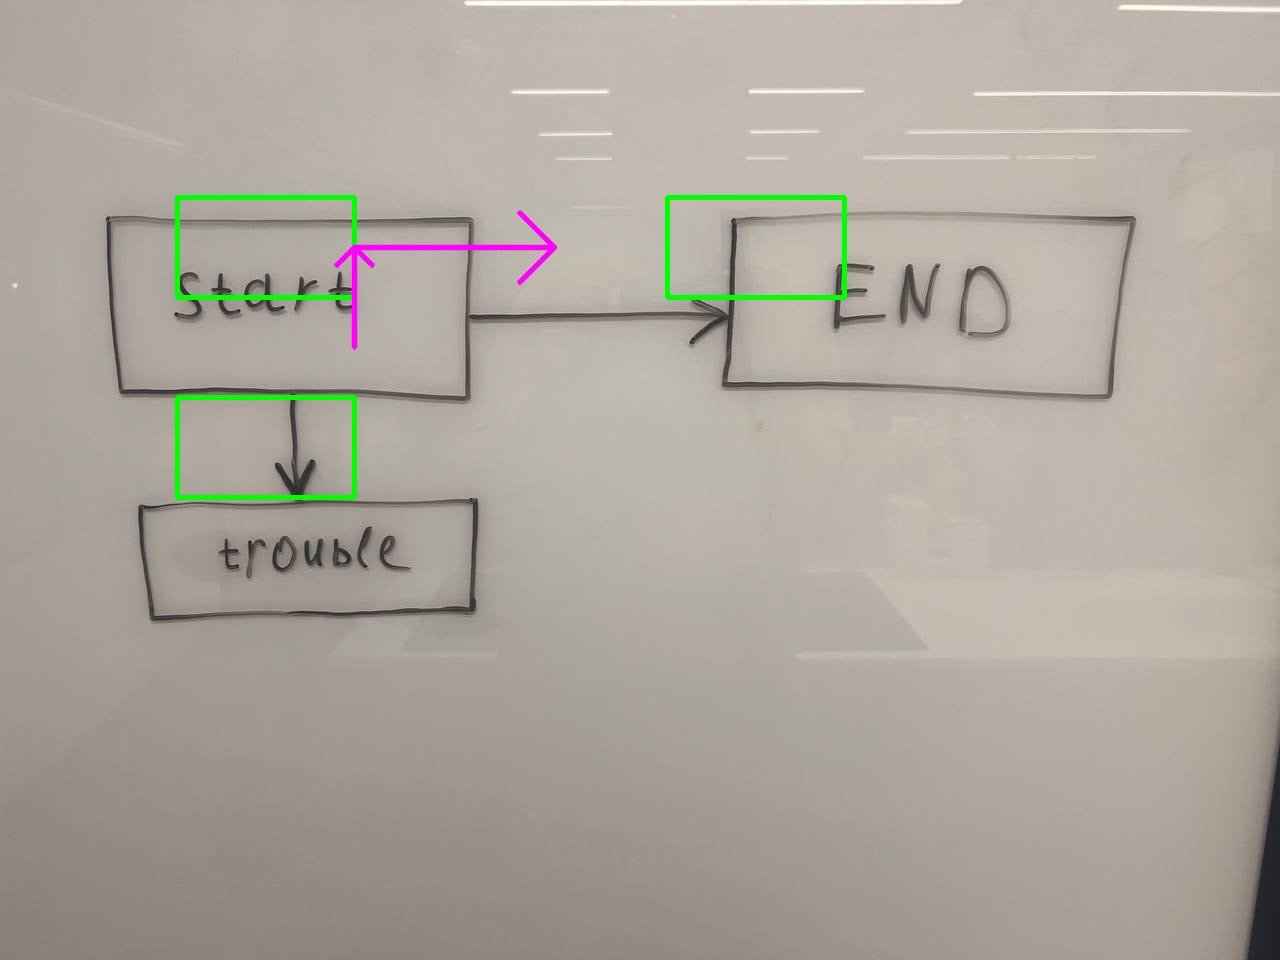 start
END
trouble